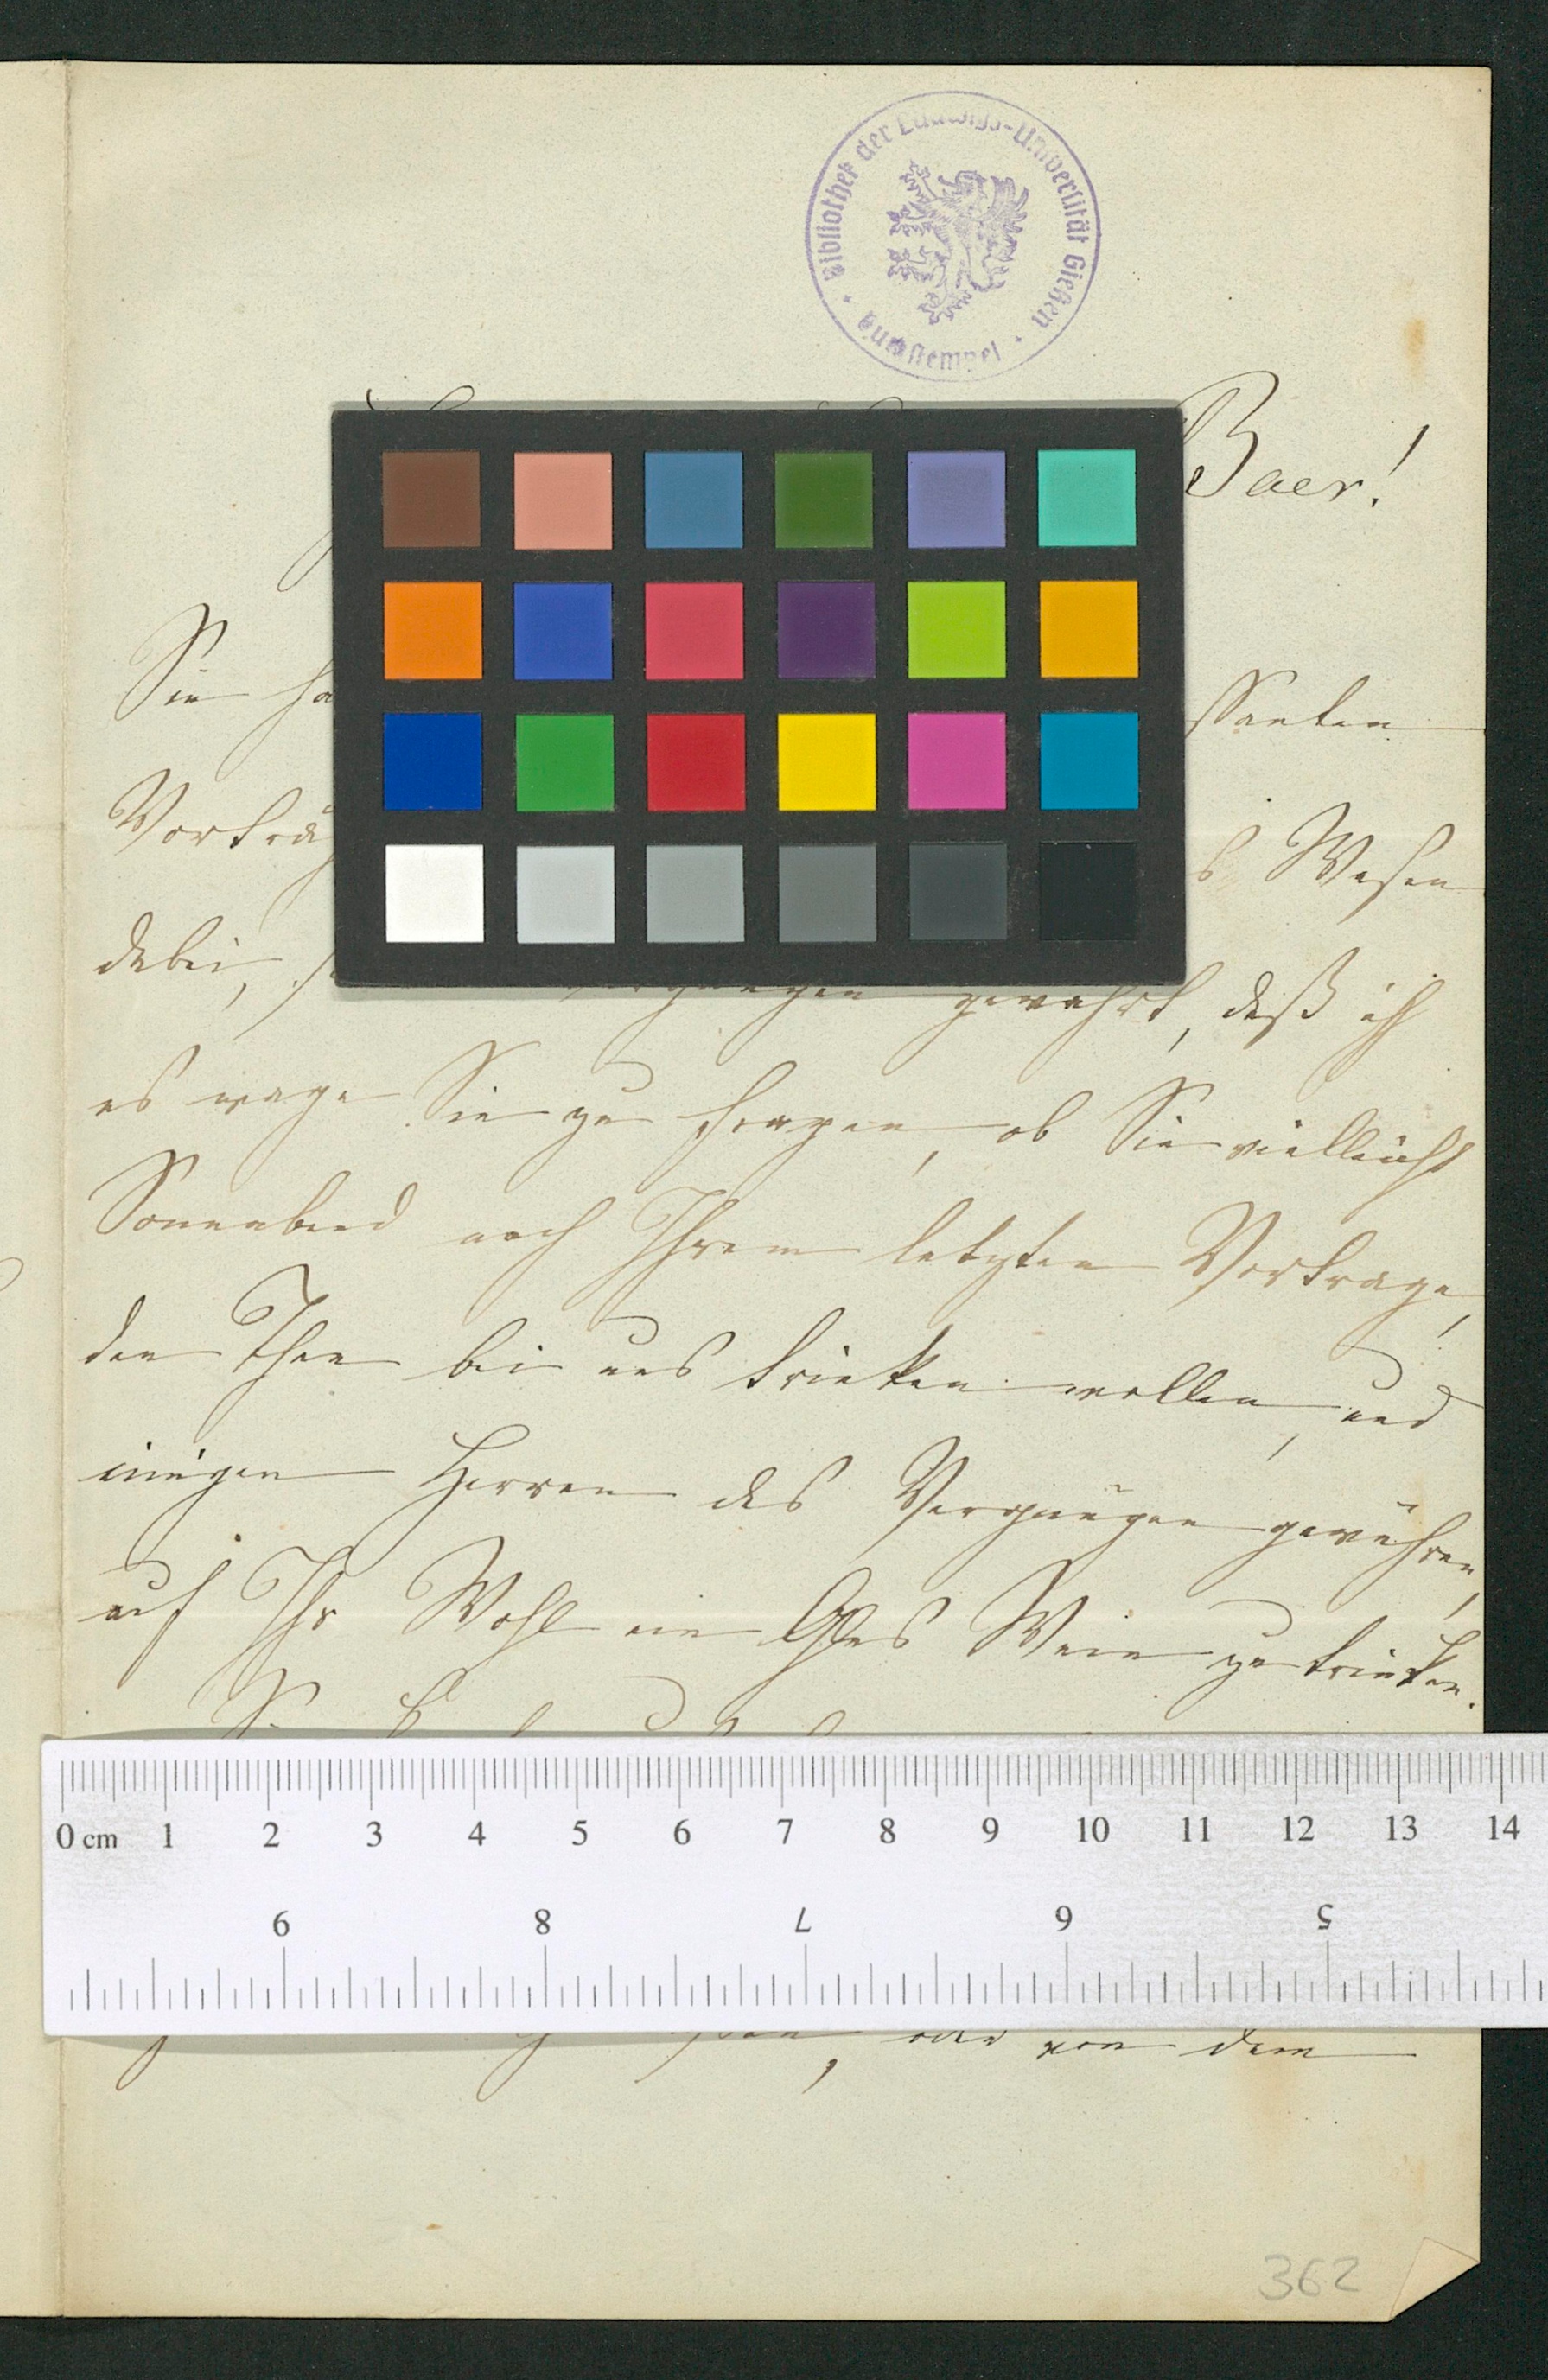 Bibliothek der Ludwigs-Universität Gießen
Baer!
Sie ha
ssanten
Vorträg
s Wesen
dabei,
gewährt, daß ich
es wage Sie zu fragen, ob Sie vielleicht
Sonnabend nach Ihrem letzten Vortrage,
den Thee bei uns trinken wollen, und
einigen Herren das Vergnügen gewähren,
auf Ihr Wohl ein Glas Wein zu trinken.
0 cm 1 2 3 4 5 6 7 8 9 10 11 12 13 14
9 8 7 6 5
oder von dem
362